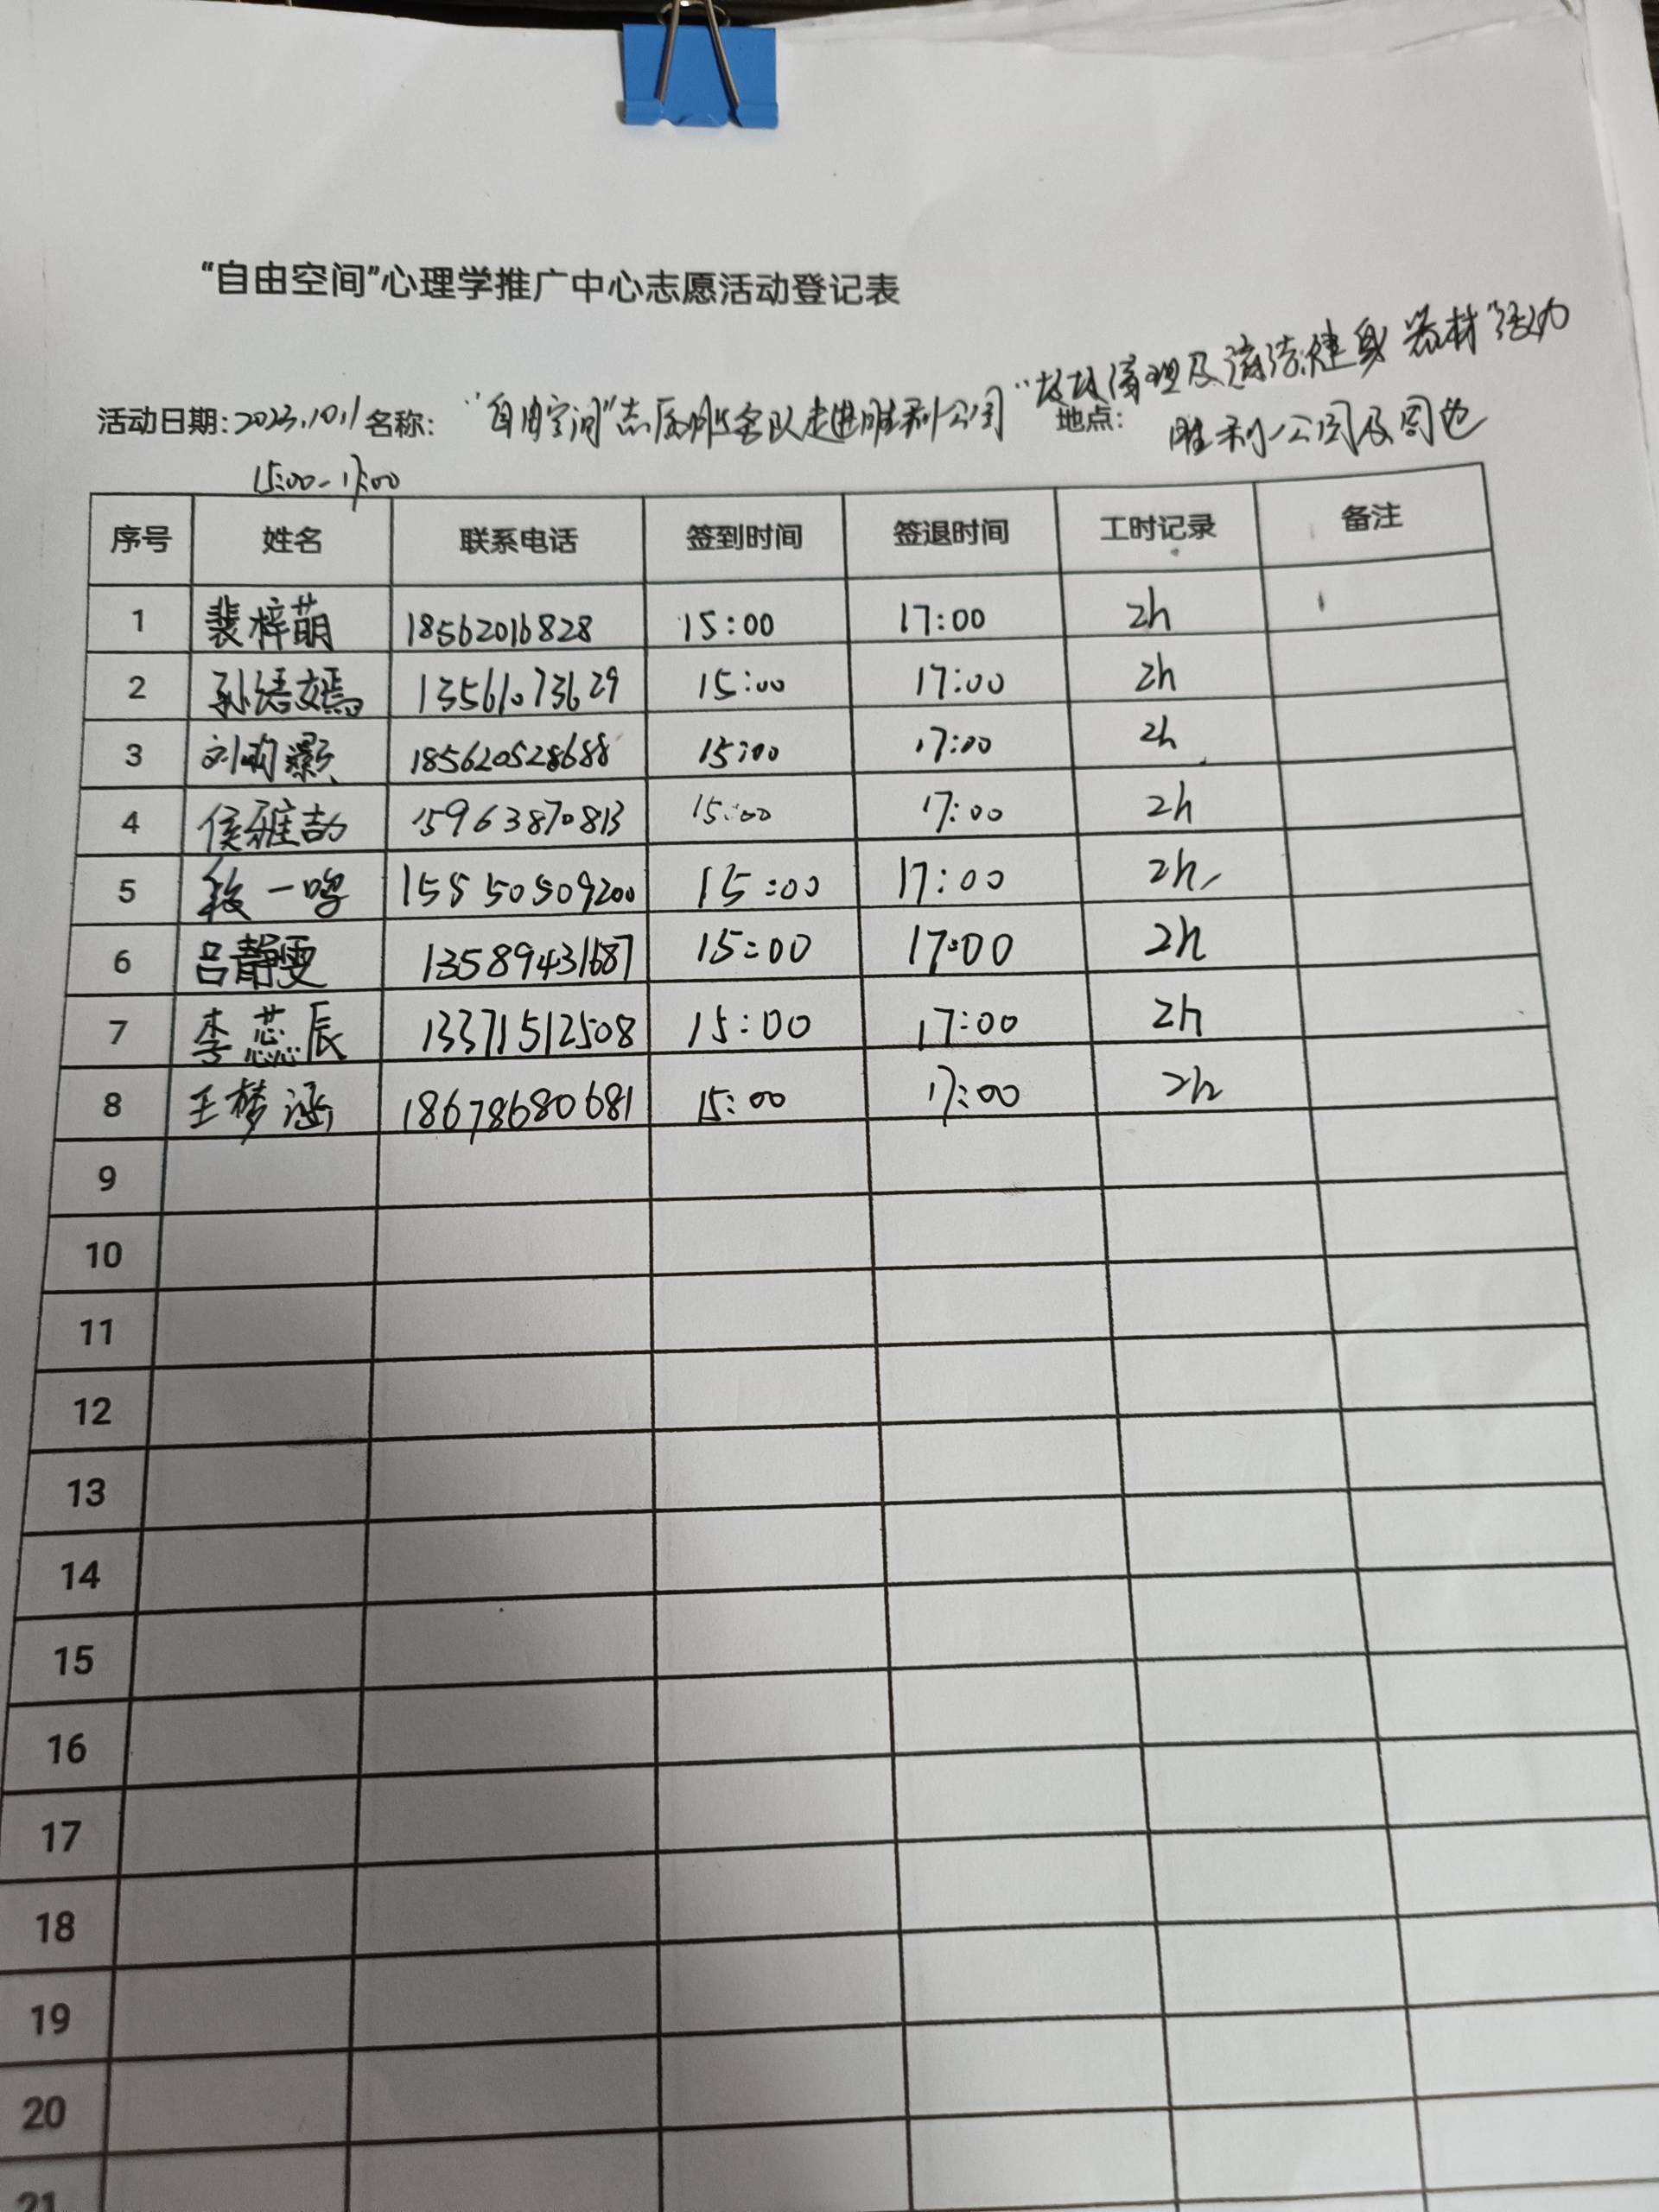 “自由空间”心理学推广中心志愿活动登记表
活动日期: 2023.10.1 名称: “自由空间”志愿服务队走进胜利公园“垃圾清理及清洁健身器材”活动
地点: 胜利公园及周边
15:00-17:00
序号 姓名 联系电话 签到时间 签退时间 工时记录 备注
1 裴梓萌 18562016828 15:00 17:00 2h
2 孙语嫣 13561073629 15:00 17:00 2h
3 刘灏 185620528688 15:00 17:00 2h
4 侯雅喆 15963870813 15:00 17:00 2h
5 段一鸣 15550509200 15:00 17:00 2h
6 吕静雯 13589431687 15:00 17:00 2h
7 李蕊辰 13371512508 15:00 17:00 2h
8 王梦涵 18678680681 15:00 17:00 2h
9
10
11
12
13
14
15
16
17
18
19
20
21